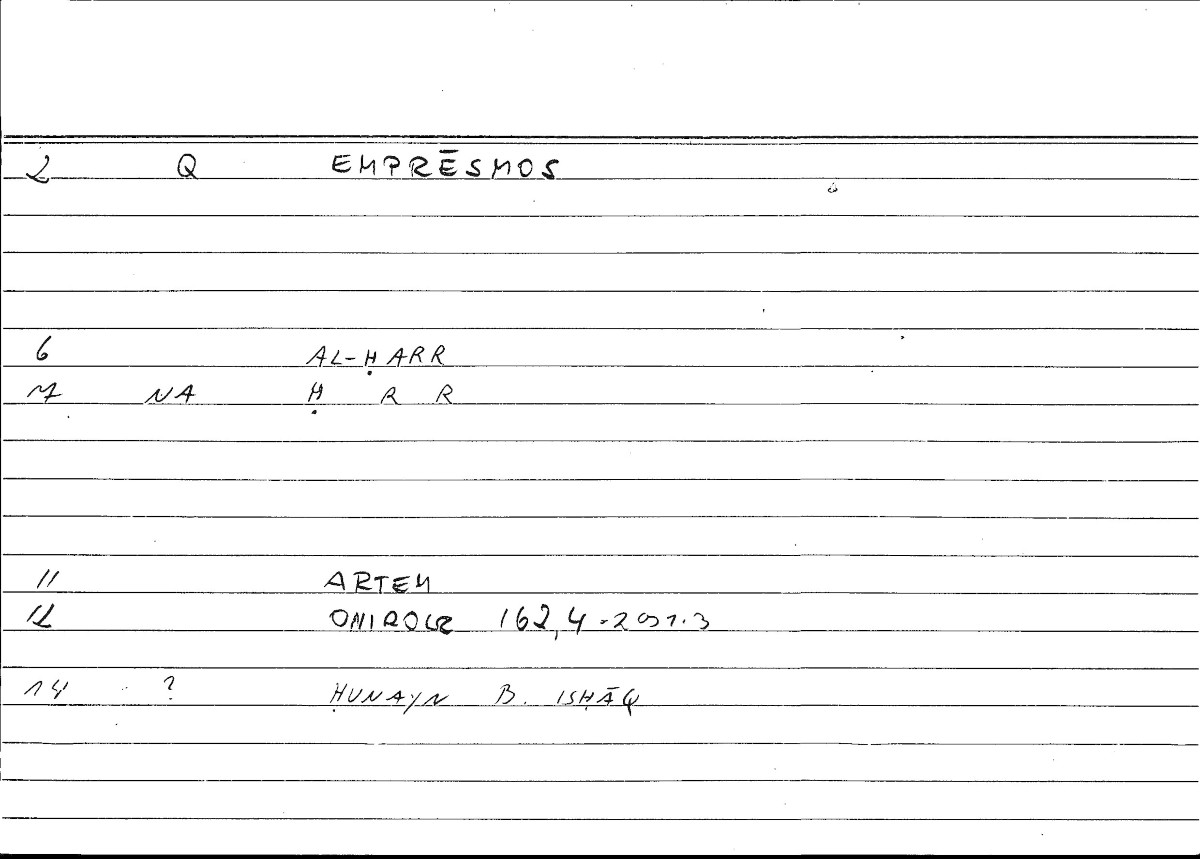 2 Q EMPRĒSMOS
6 AL-ḤARR
7 NA Ḥ R R
11 ARTEM
12 ONIROCR 162,4
14 ? ḤUNAYN B. ISḤĀQ